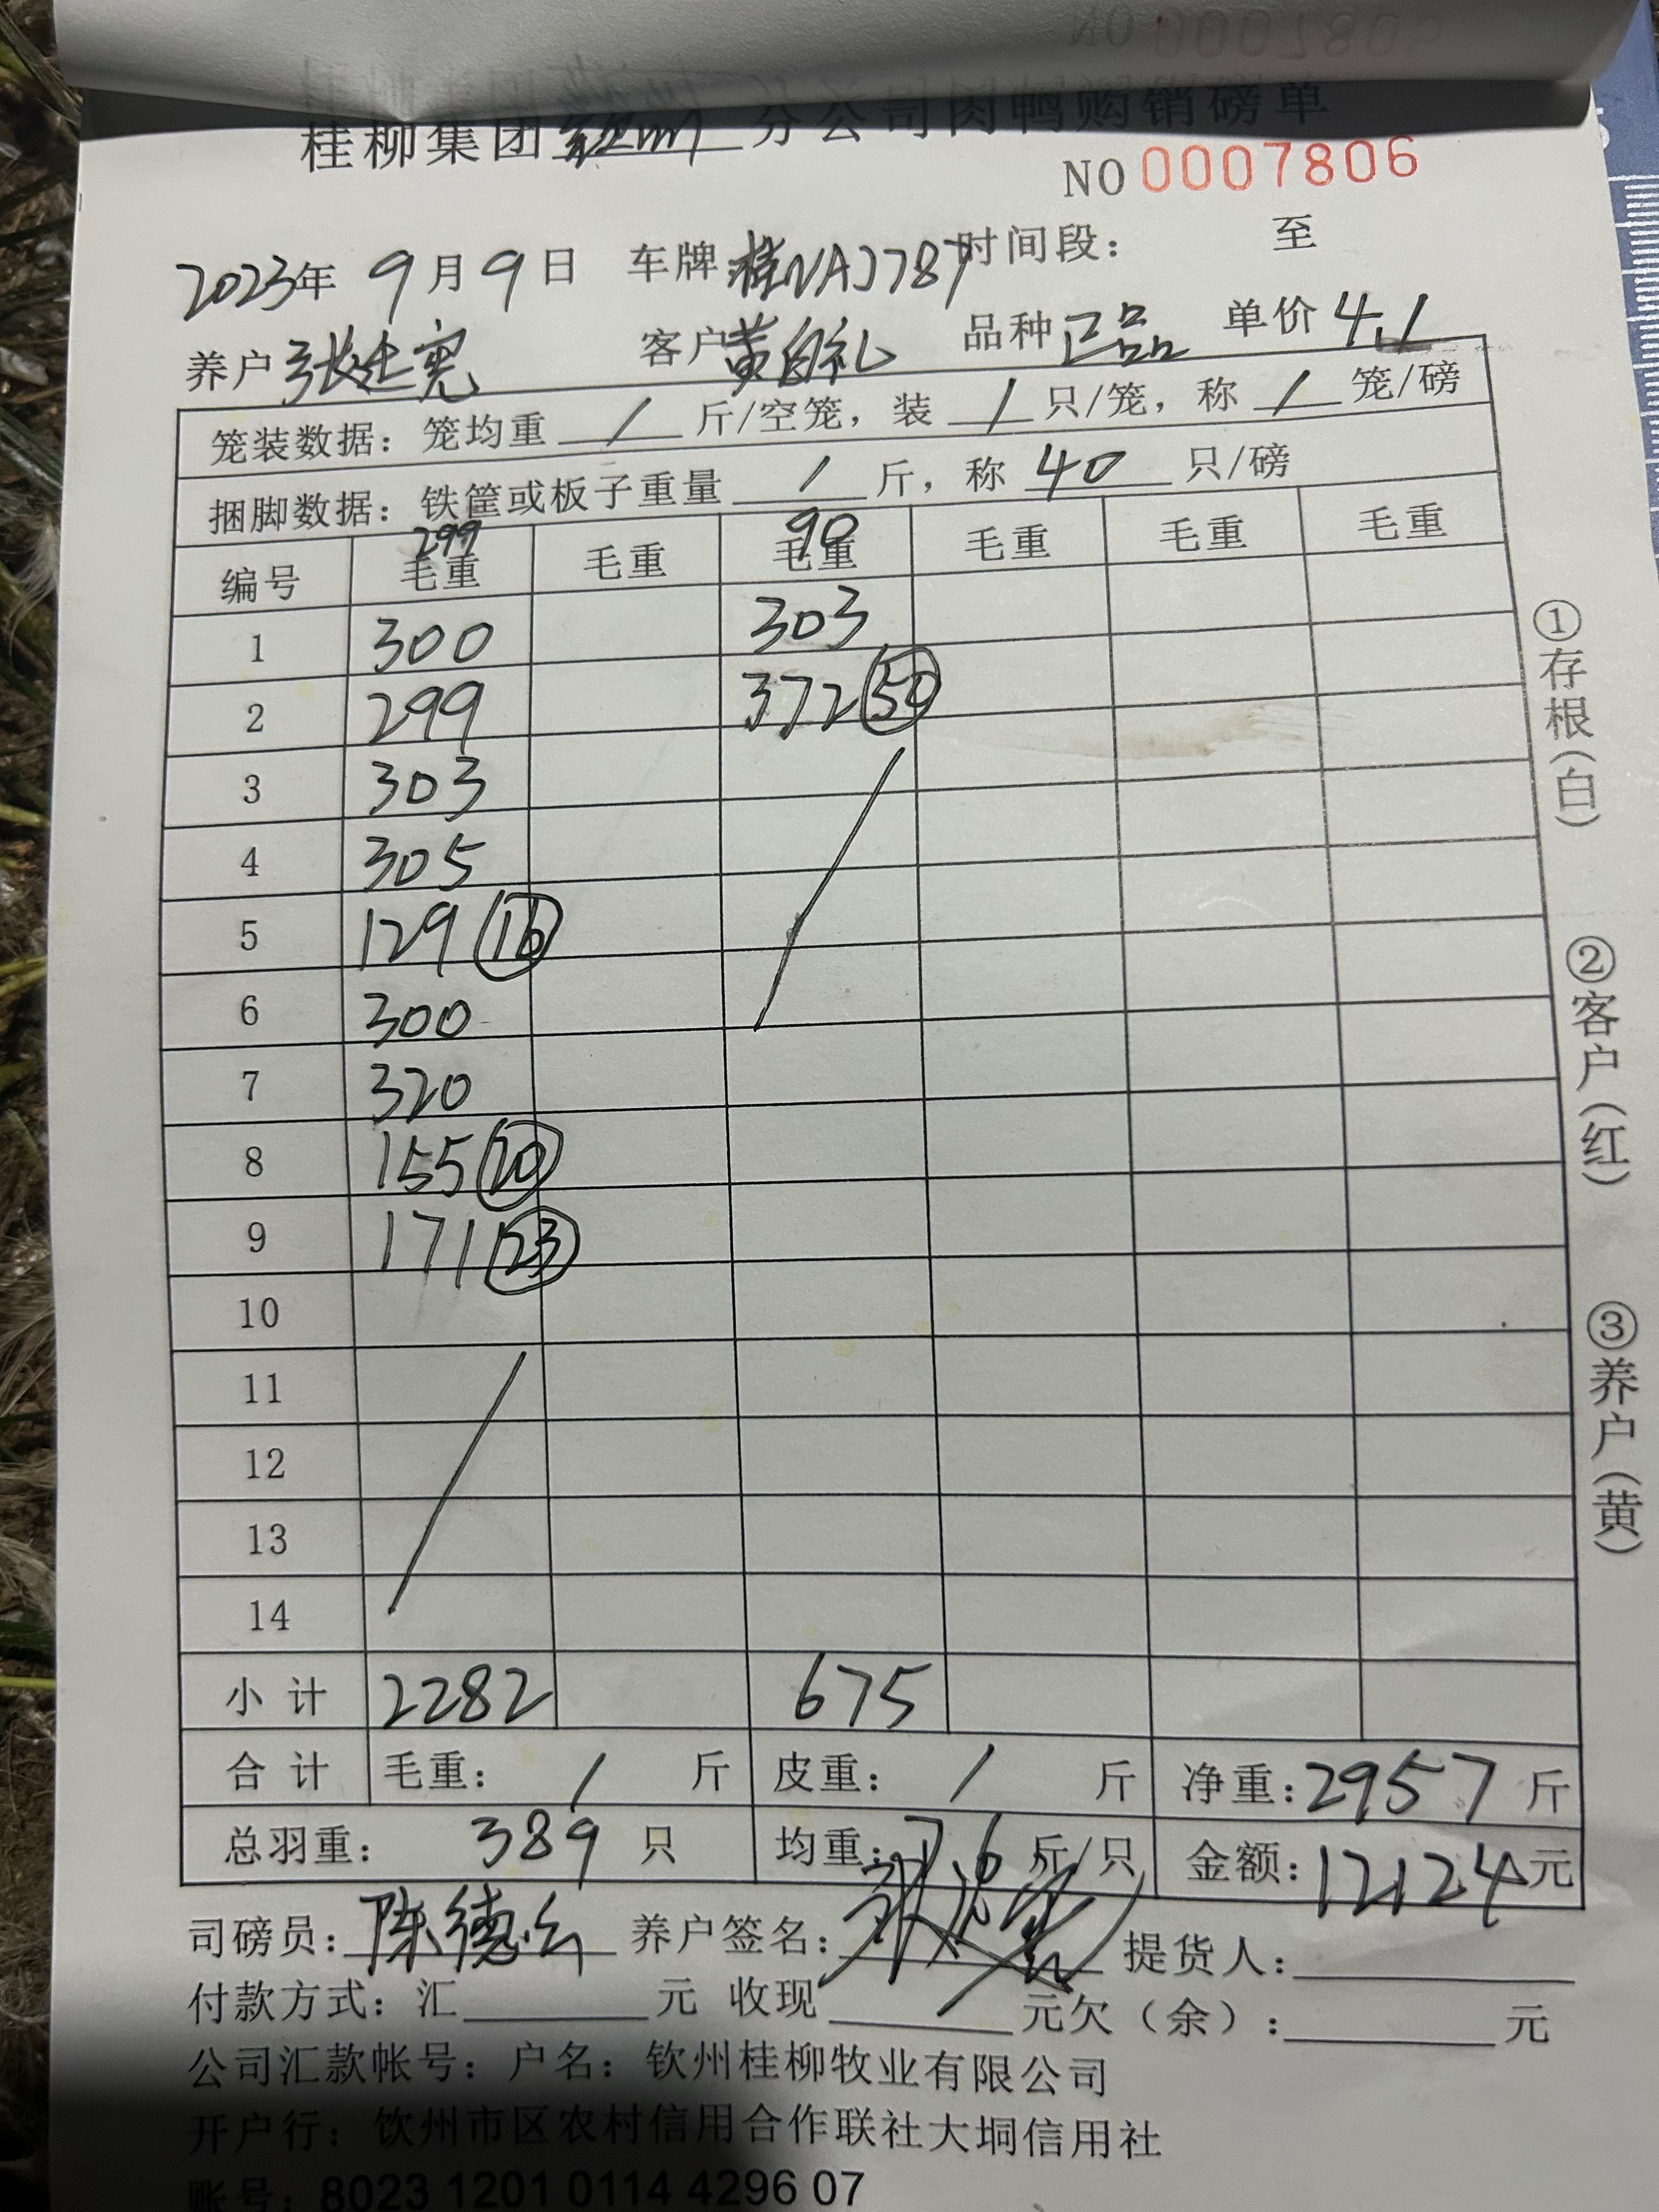 NO 0007805
桂柳集团钦州分公司肉鸭购销磅单
NO 0007806
2023年 9月9日 车牌 桂NAJ787 时间段: 至
养户 张廷宪 客户 黄自礼 品种 正品 单价 4.1
笼装数据: 笼均重 / 斤/空笼, 装 / 只/笼, 称 / 笼/磅
捆脚数据: 铁筐或板子重量 / 斤, 称 40 只/磅
299 90
编号 毛重 毛重 毛重 毛重 毛重 毛重
1 300 303
2 299 372 50
3 303
4 305
5 129 16
6 300
7 320
8 155 20
9 171 23
10
11
12
13
14
小计 2282 675
合计 毛重: / 斤 皮重: / 斤 净重: 2957 斤
总羽重: 389 只 均重: 7.6 斤/只 金额: 12124 元
司磅员: 陈德 养户签名: 提货人:
付款方式: 汇 元 收现 元欠(余): 元
公司汇款帐号: 户名: 钦州桂柳牧业有限公司
开户行: 钦州市区农村信用合作联社大垌信用社
账号: 8023 1201 0114 4296 07
①存根(白)
②客户(红)
③养户(黄)